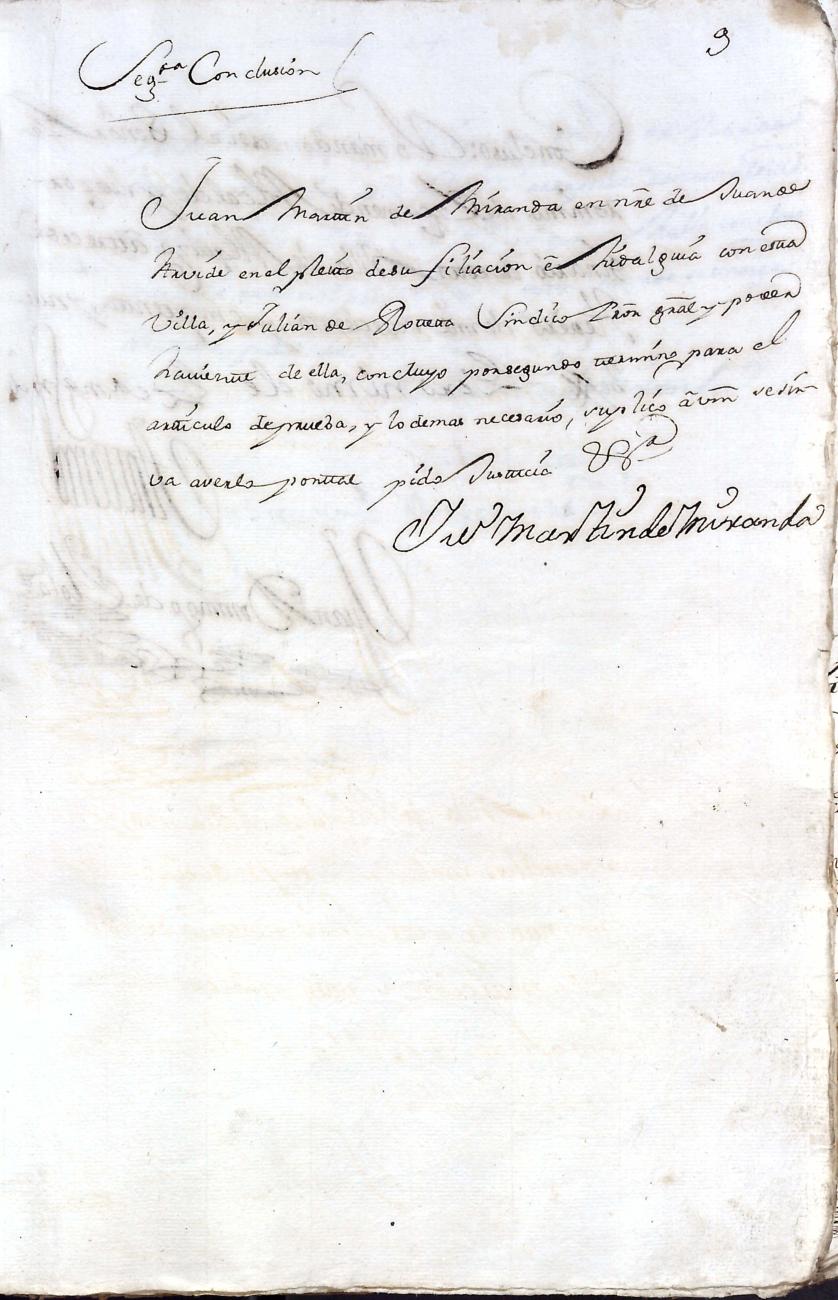 9
Seg.da Conclusion
Juan Martin de Miranda en nre de Juan de
Arvide en el pleito de su filiacion e hidalguia con esta
Villa, y Julian de Sindico Pror gral y poder
haviente de ella, concluyo por segundo termino para el
articulo de prueba, y lo demas necesario, suplico a vm se sir-
va averlo por tal pido Justicia &ra
Juo Martin de Miranda